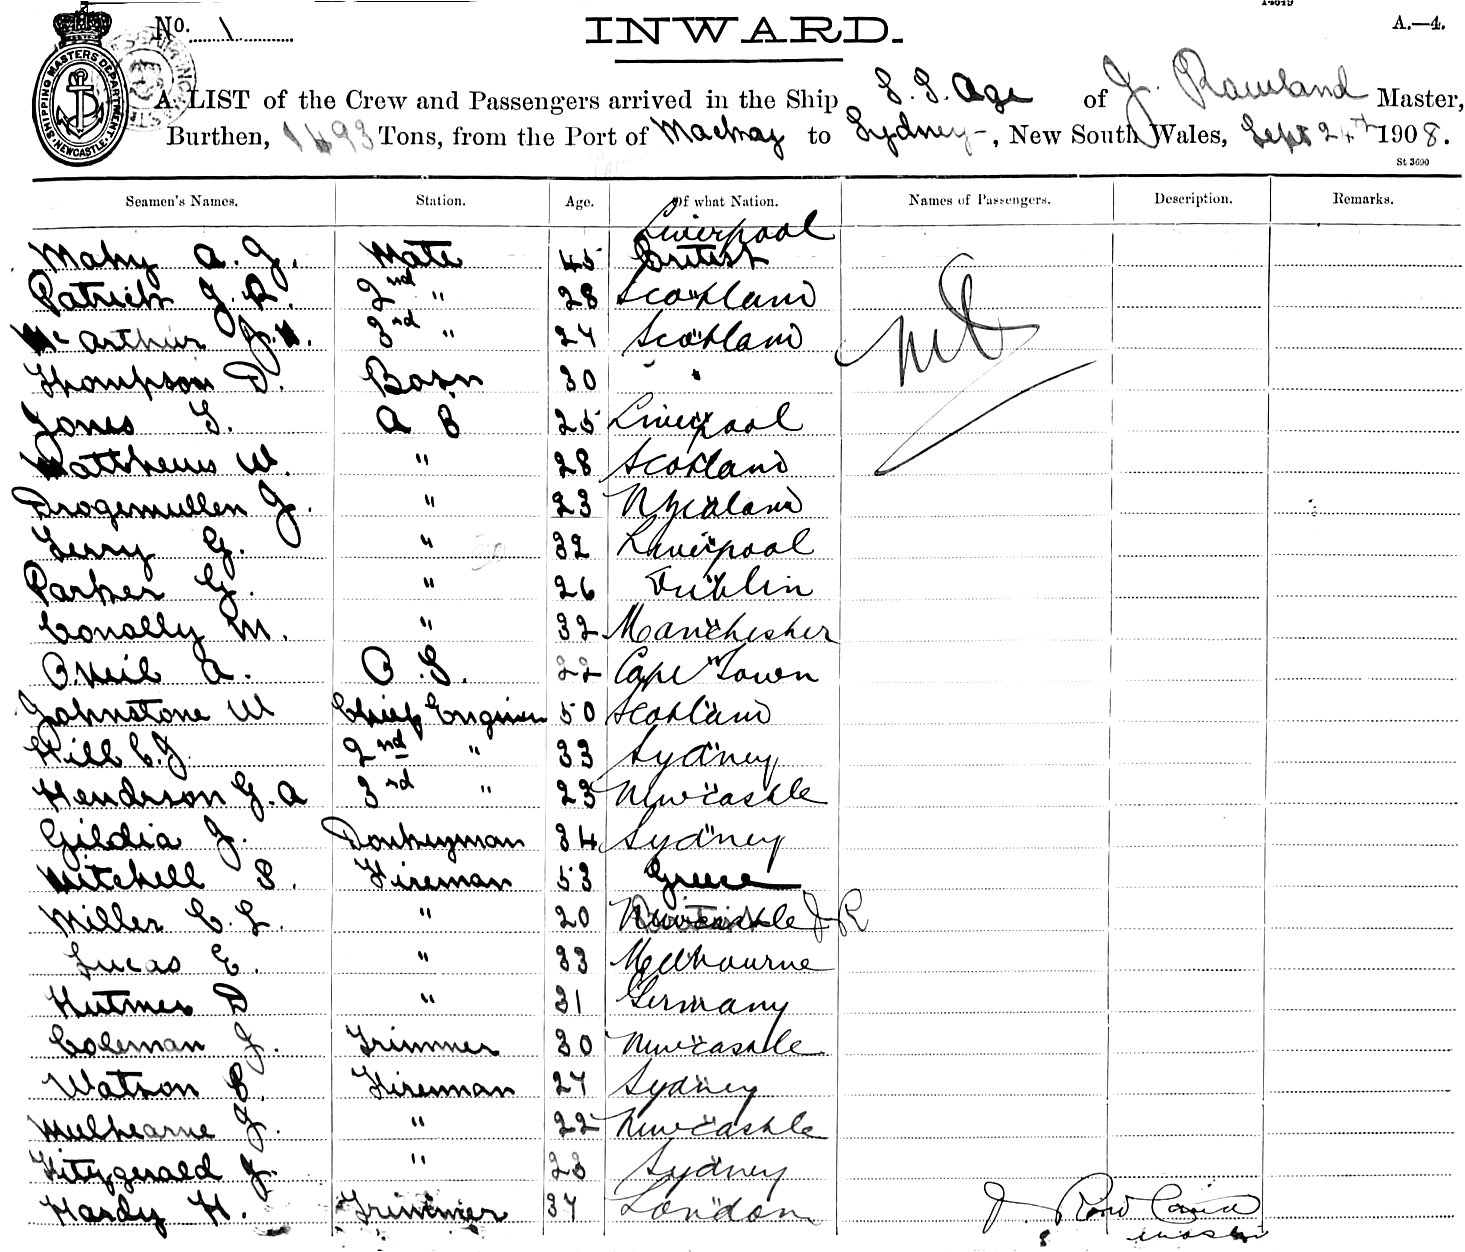 14649
No. 1
INWARD.
A.—4.
SHIPPING MASTERS DEPARTMENT NEWCASTLE
A LIST of the Crew and Passengers arrived in the Ship S. S. Age of J. Rowland Master,
Burthen, 1493 Tons, from the Port of Mackay to Sydney, New South Wales, Sept 24th 1908.
St 3690
Seamen's Names. Station. Age. Of what Nation. Names of Passengers. Description. Remarks.
Liverpool
Mahy A. G. Mate 45 British
Patrick J. R. 2nd " 28 Scotland
McArthur J. 3rd " 27 Scotland
Thompson D. Bosn 30 "
Jones T. A B 25 Liverpool
Matthews W. " 28 Scotland
Drogemullen J. " 23 N Zealand
Terry G. " 32 Liverpool
Parker G. " 26 Dublin
Conolly M. " 32 Manchester
O.Neil A. O. S. 22 Cape Town
Johnstone W Chief Engineer 50 Scotland
Hill C. J. 2nd " 33 Sydney
Henderson G. A 3rd " 23 Newcastle
Gildia J. Donkeyman 34 Sydney
Mitchell P. Fireman 53 Greece
Miller C. L. " 20 Newcastle J R
Lucas E. " 33 Melbourne
Hutmes D " 31 Germany
Coleman J. Trimmer 30 Newcastle
Watson C. Fireman 27 Sydney
Mulhearne J. " 22 Newcastle
Fitzgerald J. " 23 Sydney
Hardy H. Trimmer 37 London
Nil
J. Rowland
Master